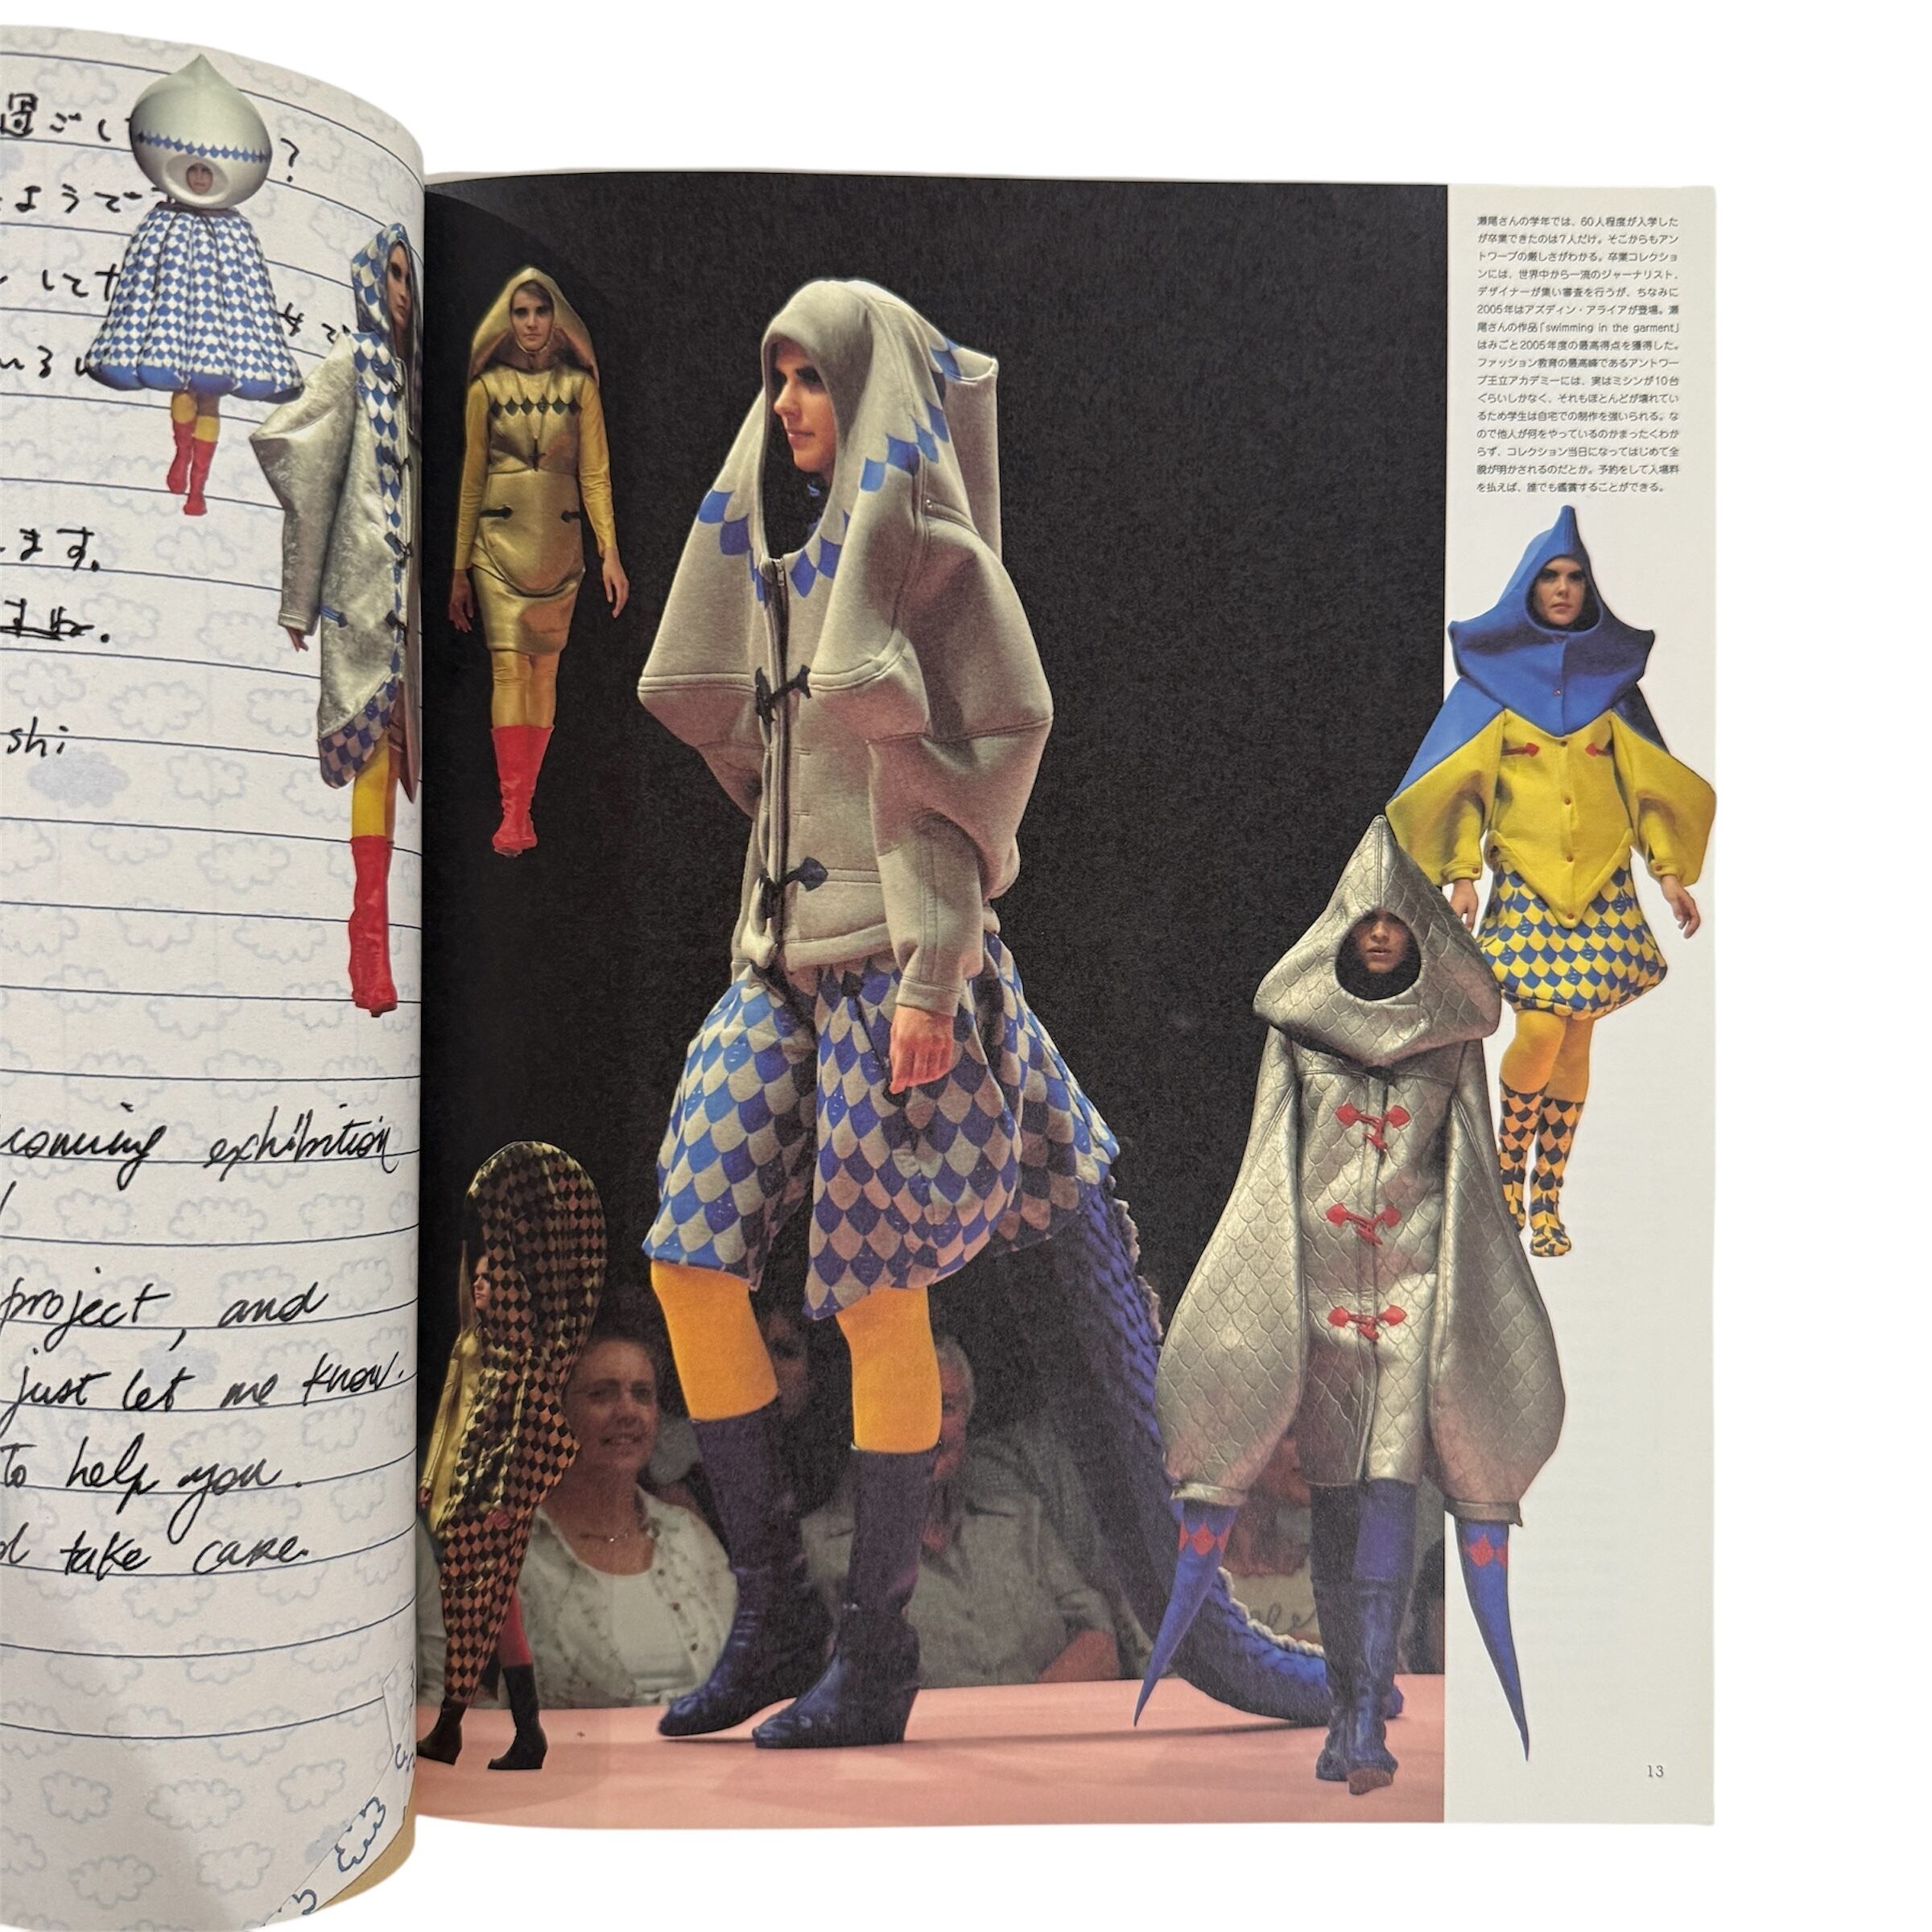 過ごし
?
ようで
して
いる
ます。
shi
coming exhibition
project, and
just let me know.
to help you.
take care.
瀬尾さんの学年では、60人程度が入学した
が卒業できたのは7人だけ。そこからもアン
トワープの厳しさがわかる。卒業コレクショ
ンには、世界中から一流のジャーナリスト、
デザイナーが集い審査を行うが、ちなみに
2005年はアズディン・アライアが登場。瀬
尾さんの作品「swimming in the garment」
はみごと2005年度の最高得点を獲得した。
ファッション教育の最高峰であるアントワー
プ王立アカデミーには、実はミシンが10台
ぐらいしかなく、それもほとんどが壊れてい
るため学生は自宅での制作を強いられる。な
ので他人が何をやっているのかまったくわか
らず、コレクション当日になってはじめて全
貌が明かされるのだとか。予約をして入場料
を払えば、誰でも鑑賞することができる。
13